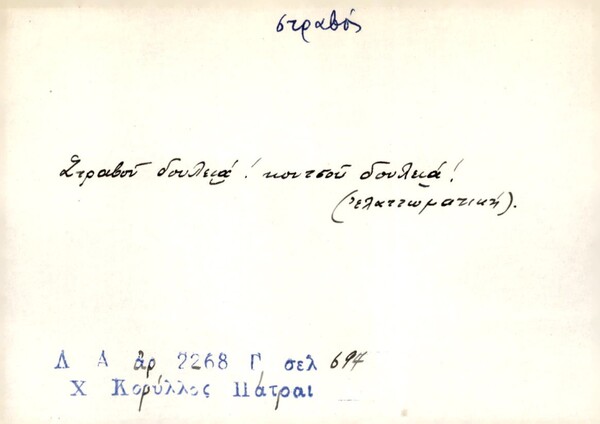 στραβός
Στραβοῦ δουλειά! κουτσοῦ δουλειά!
(ἐλαττωματική).
Λ Α ἀρ 2268 Γ σελ 697
Χ Κορύλλος Πάτραι